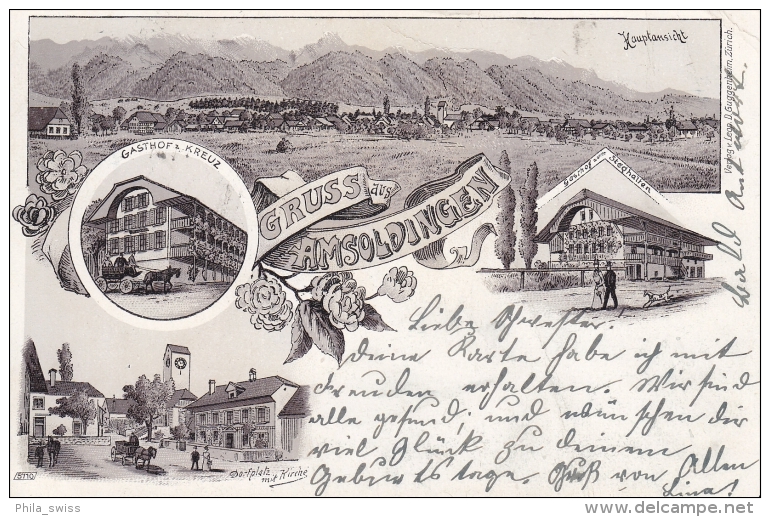 Hauptansicht
Verlag v. Leop. D. Guggenheim, Zürich.
GASTHOF Z. KREUZ
GRUSS aus
AMSOLDINGEN
Gasthof zum Steghalten
Dorfplatz
mit Kirche
5110
Liebe Schwester!
Deine Karte habe ich mit
Freuden erhalten. Wir sind
alle gesund; und wünschen dir
viel Glück zu deinem
Geburtstage. Gruß von Allen
Lina!
Phila_swiss
www.delcampe.net